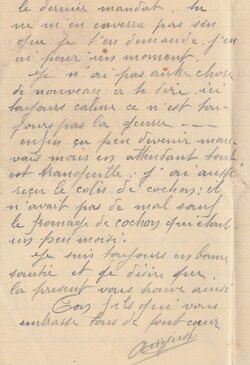 le dernier mandat. Tu
me m'en caverra pas sin
que je t'en demande, j'en
ai pour un moment.
Je n'ai pas autre chose
de nouveau a te dire ici
toujours calme ce n'est tou-
jours pas la guerre —
enfin ça peu devenir mau-
vais mais en attendant tout
est tranquille; j'ai aussi
reçu le colis de cochon; il
n'avait pas de mal sauf
le fromage de cochon qu'était
un peu moisi.
Je suis toujours en bonne
santée et je désire que
la present vous trouve ainsi
Ton fils qui vous
embrasse tous de tout cœur
August